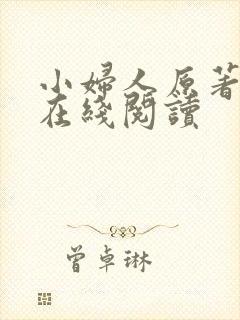 小婦人原著
在綫閱讀
曾卓琳